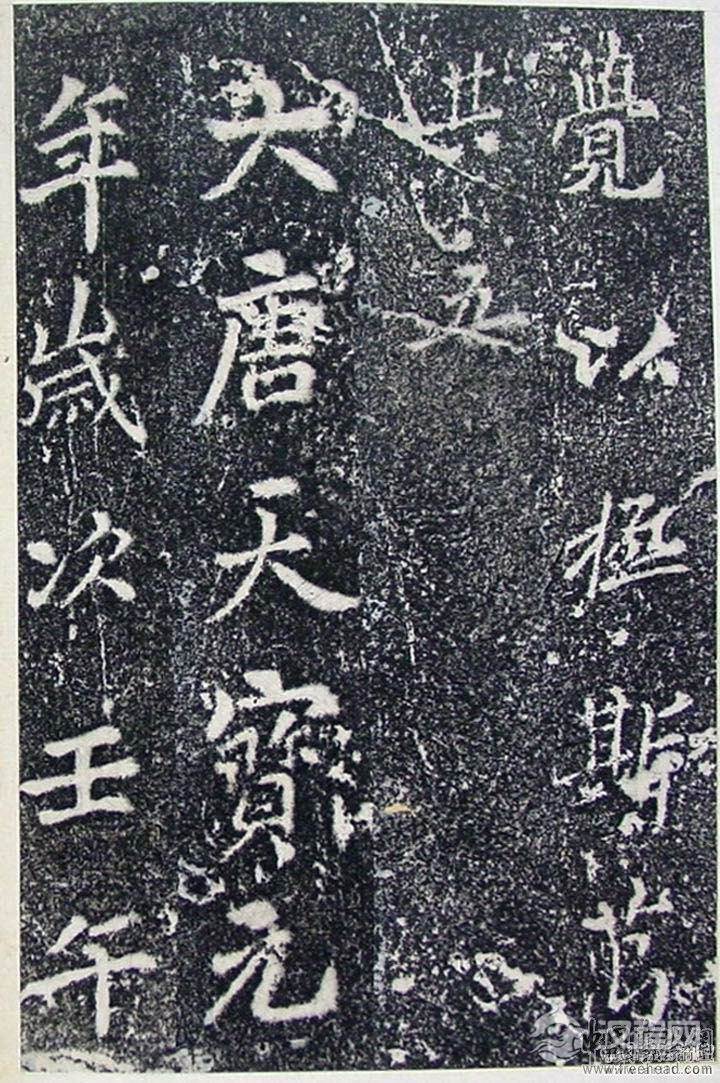 覺以極斯
其五
大唐天寶元
年歲次壬午
www.freehead.com